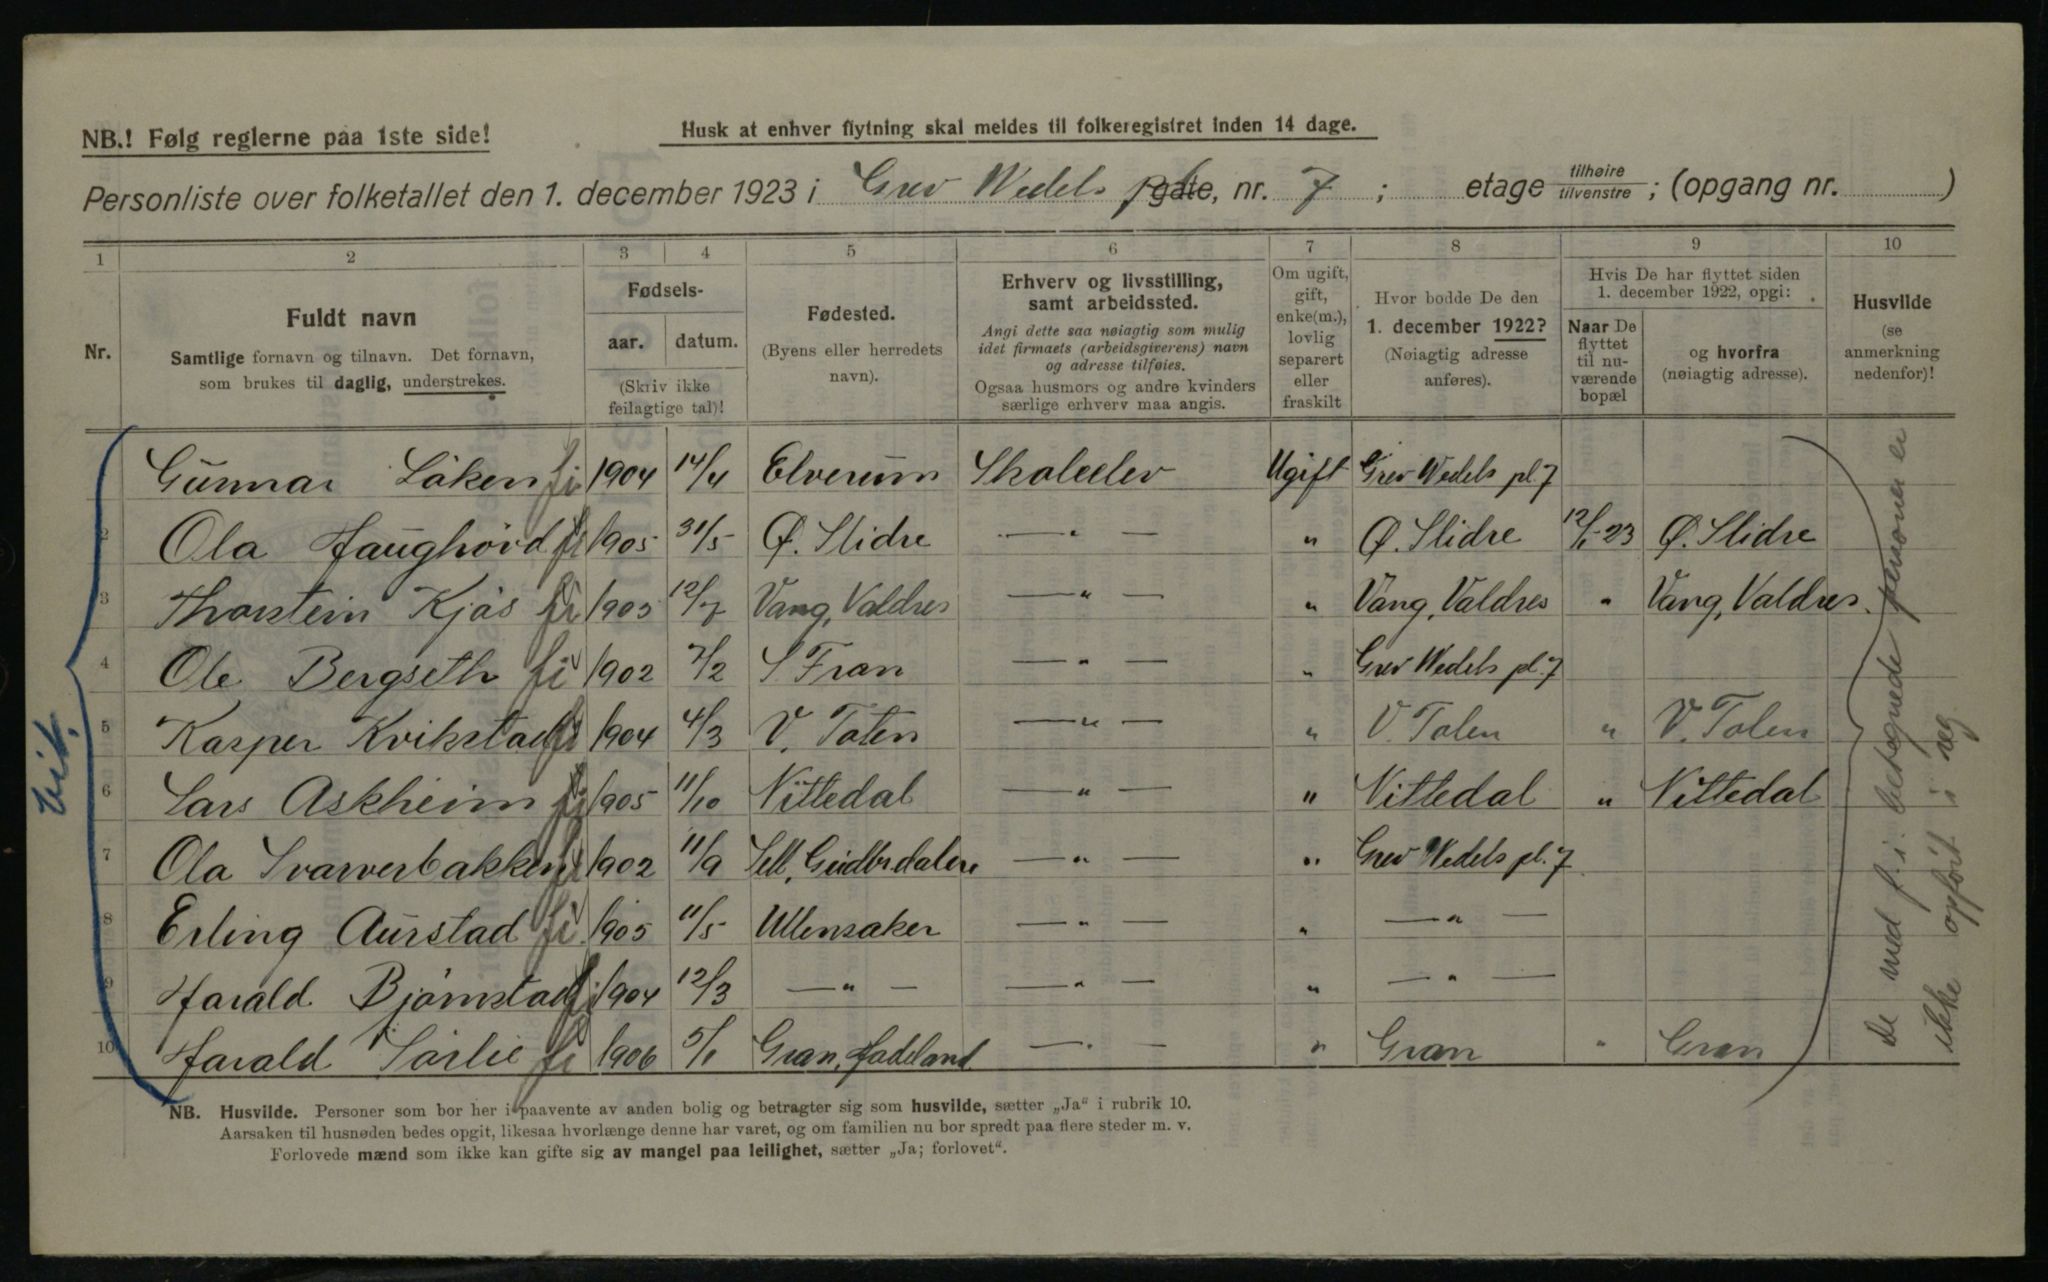 NB.! Følg reglerne paa 1ste side!
Husk at enhver flytning skal meldes til folkeregistret inden 14 dage.
Personliste over folketallet den 1. december 1923 i Grev Wedels pl. gate, nr. 7 ; etage tilhøire tilvenstre ; (opgang nr. )
1 2 3 4 5 6 7 8 9 10
Nr.
Fuldt navn
Samtlige fornavn og tilnavn. Det fornavn,
som brukes til daglig, understrekes.
Fødsels-
aar. datum.
(Skriv ikke
feilagtige tal)!
Fødested.
(Byens eller herredets
navn).
Erhverv og livsstilling,
samt arbeidssted.
Angi dette saa nøiagtig som mulig
idet firmaets (arbeidsgiverens) navn
og adresse tilføies.
Ogsaa husmors og andre kvinders
særlige erhverv maa angis.
Om ugift,
gift,
enke(m.),
lovlig
separert
eller
fraskilt
Hvor bodde De den
1. december 1922?
(Nøiagtig adresse
anføres).
Hvis De har flyttet siden
1. december 1922, opgi:
Naar De
flyttet
til nu-
værende
bopæl
og hvorfra
(nøiagtig adresse).
Husvilde
(se
anmerkning
nedenfor)!
Gunnar Löken fi 1904 14/4 Elverum Skoleelev Ugift Grev Wedels pl. 7
2 Ola Haughövd fi 1905 31/5 Ø. Slidre — " — " Ø. Slidre 12/1-23 Ø. Slidre
3 Thorstein Kjös fi 1905 12/7 Vang, Valdres — " — " Vang, Valdres " Vang, Valdres.
4 Ole Bergseth fi 1902 7/2 S Fron — " — " Grev Wedels pl. 7
5 Kasper Kvikstad fi 1904 4/3 V. Toten — " — " V. Toten " V. Toten
6 Lars Askheim fi 1905 11/10 Nittedal — " — " Nittedal " Nittedal
7 Ola Svarverbakken fi 1902 11/9 Sell, Gudbrdalen — " — " Grev Wedels pl. 7
8 Erling Aurstad fi 1905 11/5 Ullensaker — " — " — " —
9 Harald Björnstad fi 1904 12/3 — " — — " — " — " —
10 Harald Sörlie fi 1906 5/1 Gran, Hadeland — " — " Gran " Gran
De med f. i. betegnede personer er
ikke opført i reg
NB. Husvilde. Personer som bor her i paavente av anden bolig og betragter sig som husvilde, sætter „Ja“ i rubrik 10.
Aarsaken til husnøden bedes opgit, likesaa hvorlænge denne har varet, og om familien nu bor spredt paa flere steder m. v.
Forlovede mænd som ikke kan gifte sig av mangel paa leilighet, sætter „Ja; forlovet“.